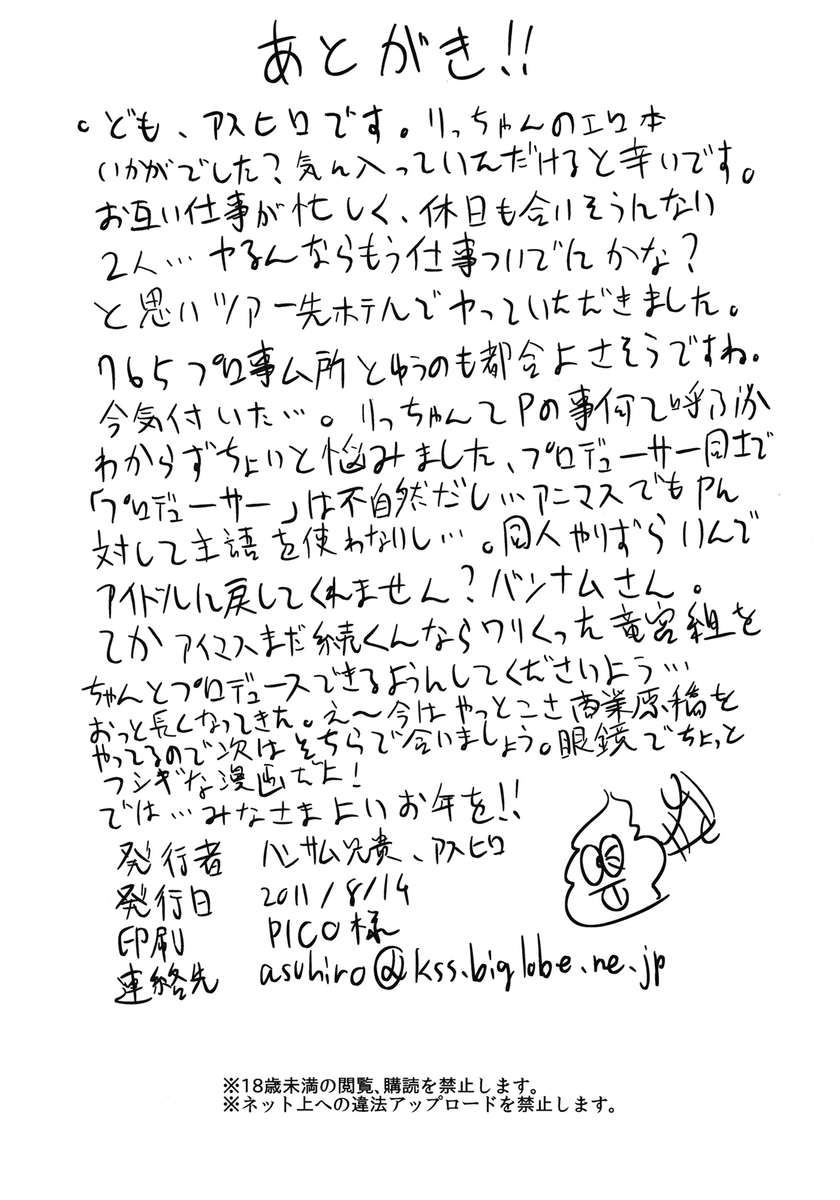 あとがき!!
。ども、アスヒロです。りっちゃんのエロ本
いかがでした?気に入っていただけると幸いです。
お互い仕事が忙しく、休日も合いそうにない
2人…ヤるんならもう仕事ついでにかな?
と思いツアー先ホテルでヤっていただきました。
765プロ事ム所とゆうのも都合よさそうですね。
今気付いた…。りっちゃんてPの事何て呼ぶか
わからずちょいと悩みました、プロデューサー同士で
「プロデューサー」は不自然だし…アニマスでもPに
対して主語を使わないし…。同人やりずらいんで
アイドルに戻してくれません?バンナムさん。
てかアイマスまだ続くんならワリくった竜宮組を
ちゃんとプロデュースできるようにしてくださいよう…
おっと長くなってきた。え～今はやっとこさ商業原稿を
やってるので次はそちらで会いましょう。眼鏡でちょっと
フシギな漫画だよ!
では…みなさまよいお年を!!
発行者 ハンサム兄貴、アスヒロ
発行日 2011/8/14
印刷 PICO様
連絡先 asuhiro@kss.biglobe.ne.jp
※18歳未満の閲覧、購読を禁止します。
※ネット上への違法アップロードを禁止します。